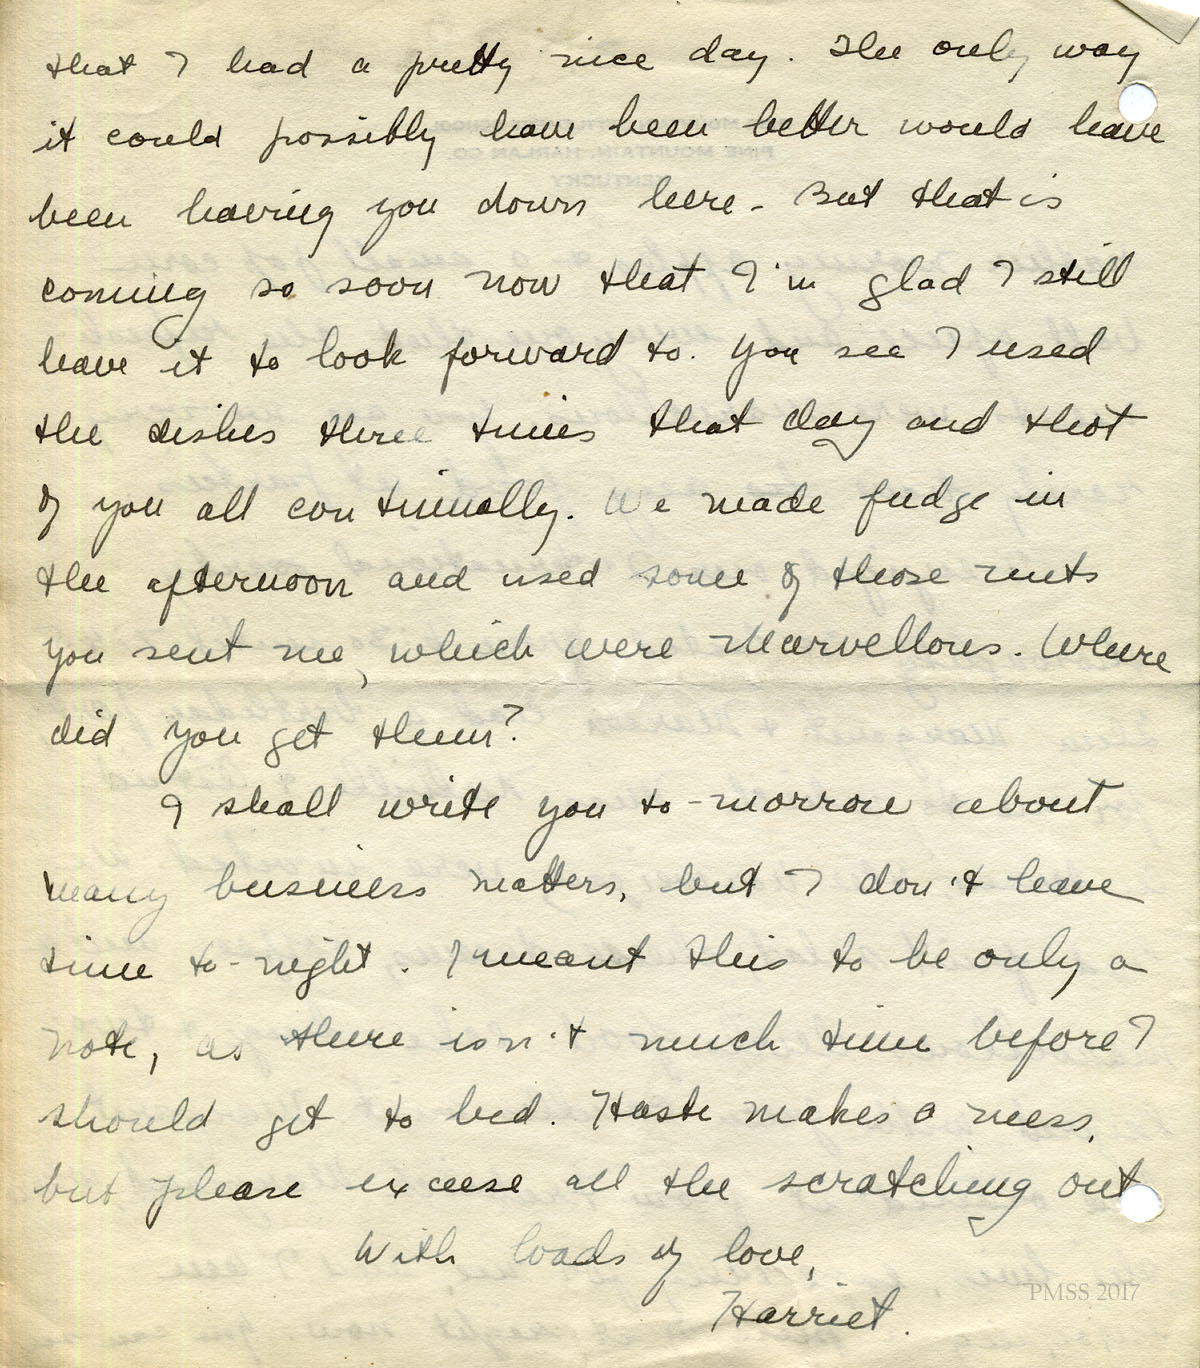 that I had a pretty nice day. The only way
it could possibly have been better would have
been having you down here. But that is
coming so soon now that I'm glad I still
have it to look forward to. You see I used
the dishes three times that day and that
of you all continually. We made fudge in
the afternoon and used some of those nuts
you sent me, which were marvellous. Where
did you get them?
I shall write you to-morrow about
many business matters, but I don't have
time to-night. I meant this to be only a
note, as there isn't much time before I
should get to bed. Haste makes a mess,
but please excuse all the scratching out
With loads of love,
Harriet.
PMSS 2017